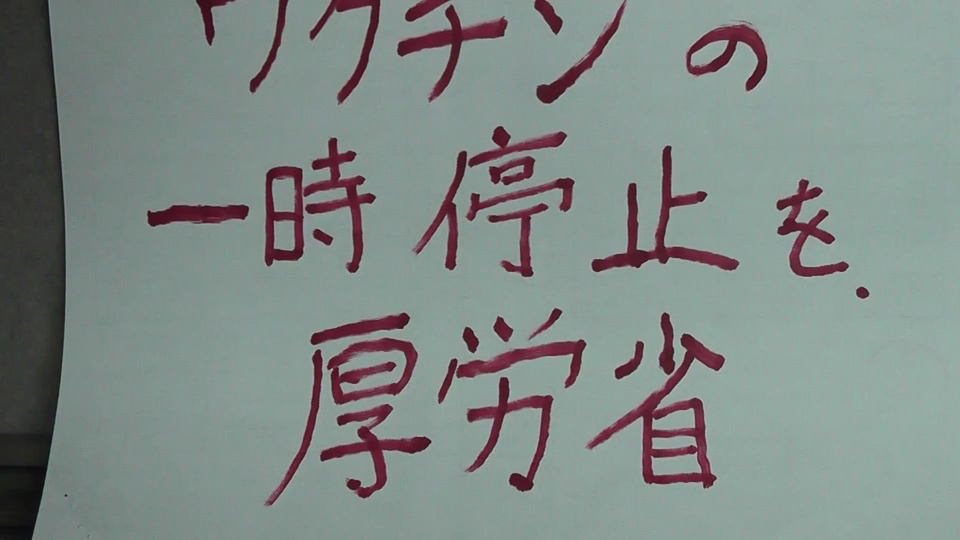 ワクチンの
一時停止を.
厚労省